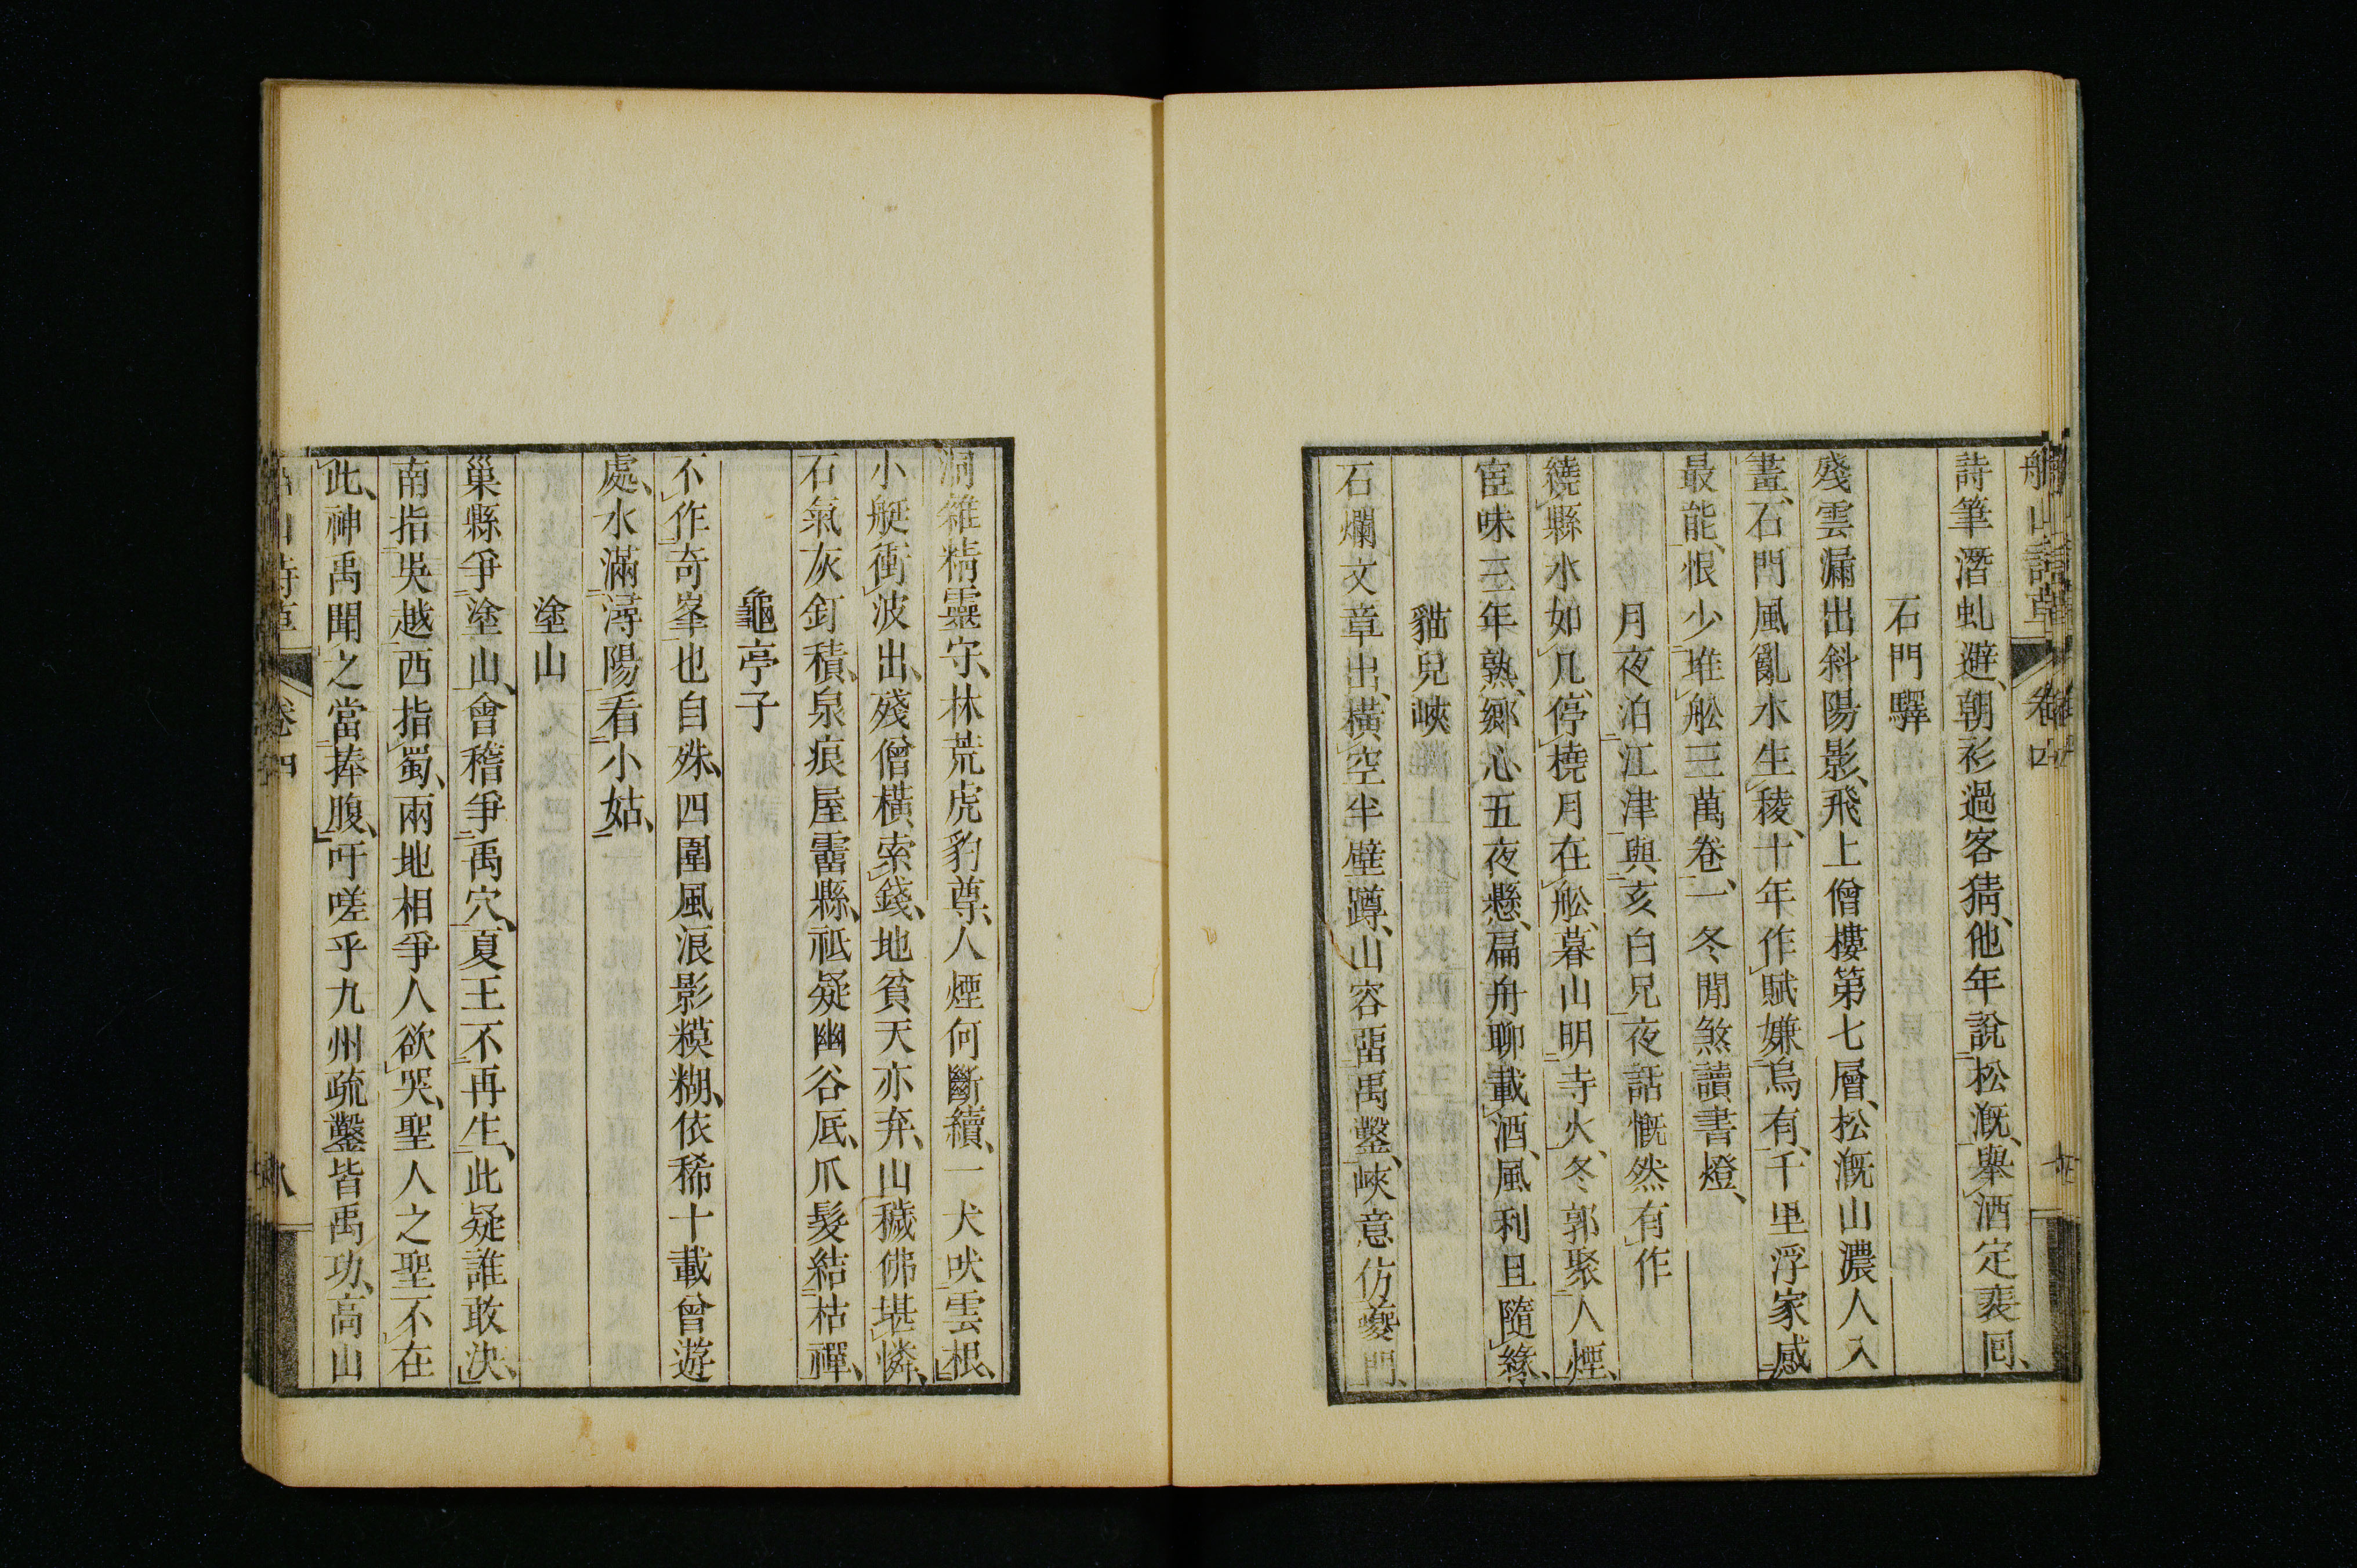 船山詩草 卷四
詩筆潛虬避、朝衫過客猜、他年說松漑、擧酒定裴回、
石門驛
殘雲漏出斜陽影、飛上僧樓第七層、松漑山濃人入
畫、石門風亂水生稜、十年作賦嫌烏有、千里浮家感
最能、恨少堆舩三萬卷、一冬閒煞讀書燈、
月夜泊江津與亥白兄夜話慨然有作
繞縣水如几、停橈月在舩、暮山明寺火、冬郭聚人煙、
宦味三年熟、鄉心五夜懸、扁舟聊載酒、風利且隨緣、
貓兒峽
石爛文章出、橫空半壁蹲、山容歪禹鑿、峽意仿夔門、
洞雜精靈守、林荒虎豹尊、人煙何斷續、一犬吠雲根、
小艇衝波出、殘僧橫索錢、地貧天亦弃、山穢佛堪憐、
石氣灰釘積、泉痕屋霤縣、祗疑幽谷底、爪髮結枯禪、
龜亭子
不作奇峯也自殊、四圍風浪影糢糊、依稀十載曾遊
處、水滿潯陽看小姑、
塗山
巢縣爭塗山、會稽爭禹穴、夏王不再生、此疑誰敢決、
南指吳越西指蜀、兩地相爭人欲哭、聖人之聖不在
此、神禹聞之當捧腹、吁嗟乎九州疏鑿皆禹功、高山
山詩草 卷四 八